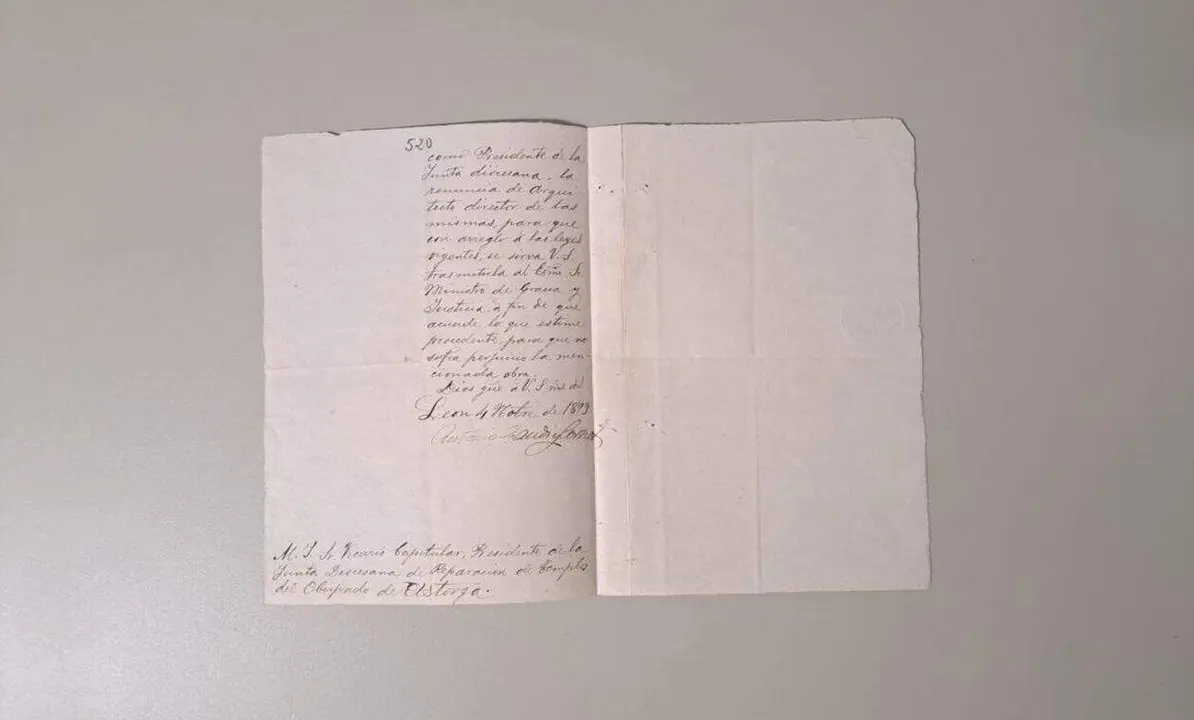 520
como Presidente de la
Junta diocesana, la
renuncia de Arqui-
tecto director de las
mismas, para que
con arreglo á las leyes
vigentes, se sirva V. S.
trasmitirla al Exmo Sr.
Ministro de Gracia y
Justicia á fin de que
acuerde lo que estime
procedente, para que no
sufra perjuicio la men-
cionada obra.
Dios gue á V. S. ms as
Leon 4 Nobre de 1893
Antonio Gaudí y Cornet
M. I. Sr Vicario Capitular, Presidente de la
Junta Diocesana de Reparacion de Templos
del Obispado de Astorga.